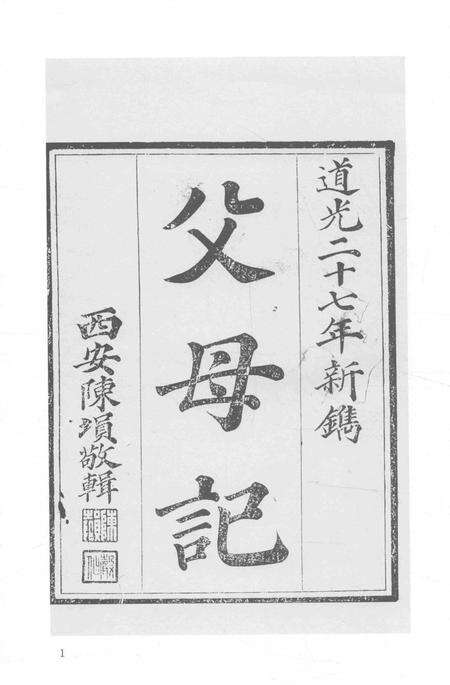 道光二十七年新鐫
父母記
西安陳塤敬輯
1